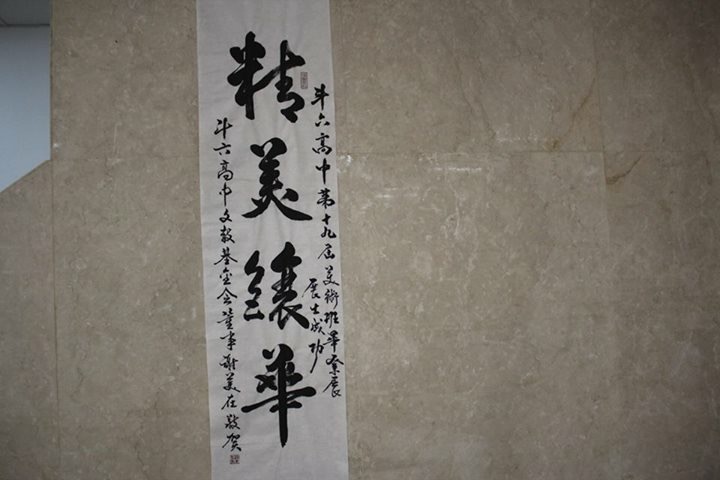 斗六高中第十九屆美術班畢業展
展出成功
精美華
斗六高中文教基金會董事謝美在敬賀